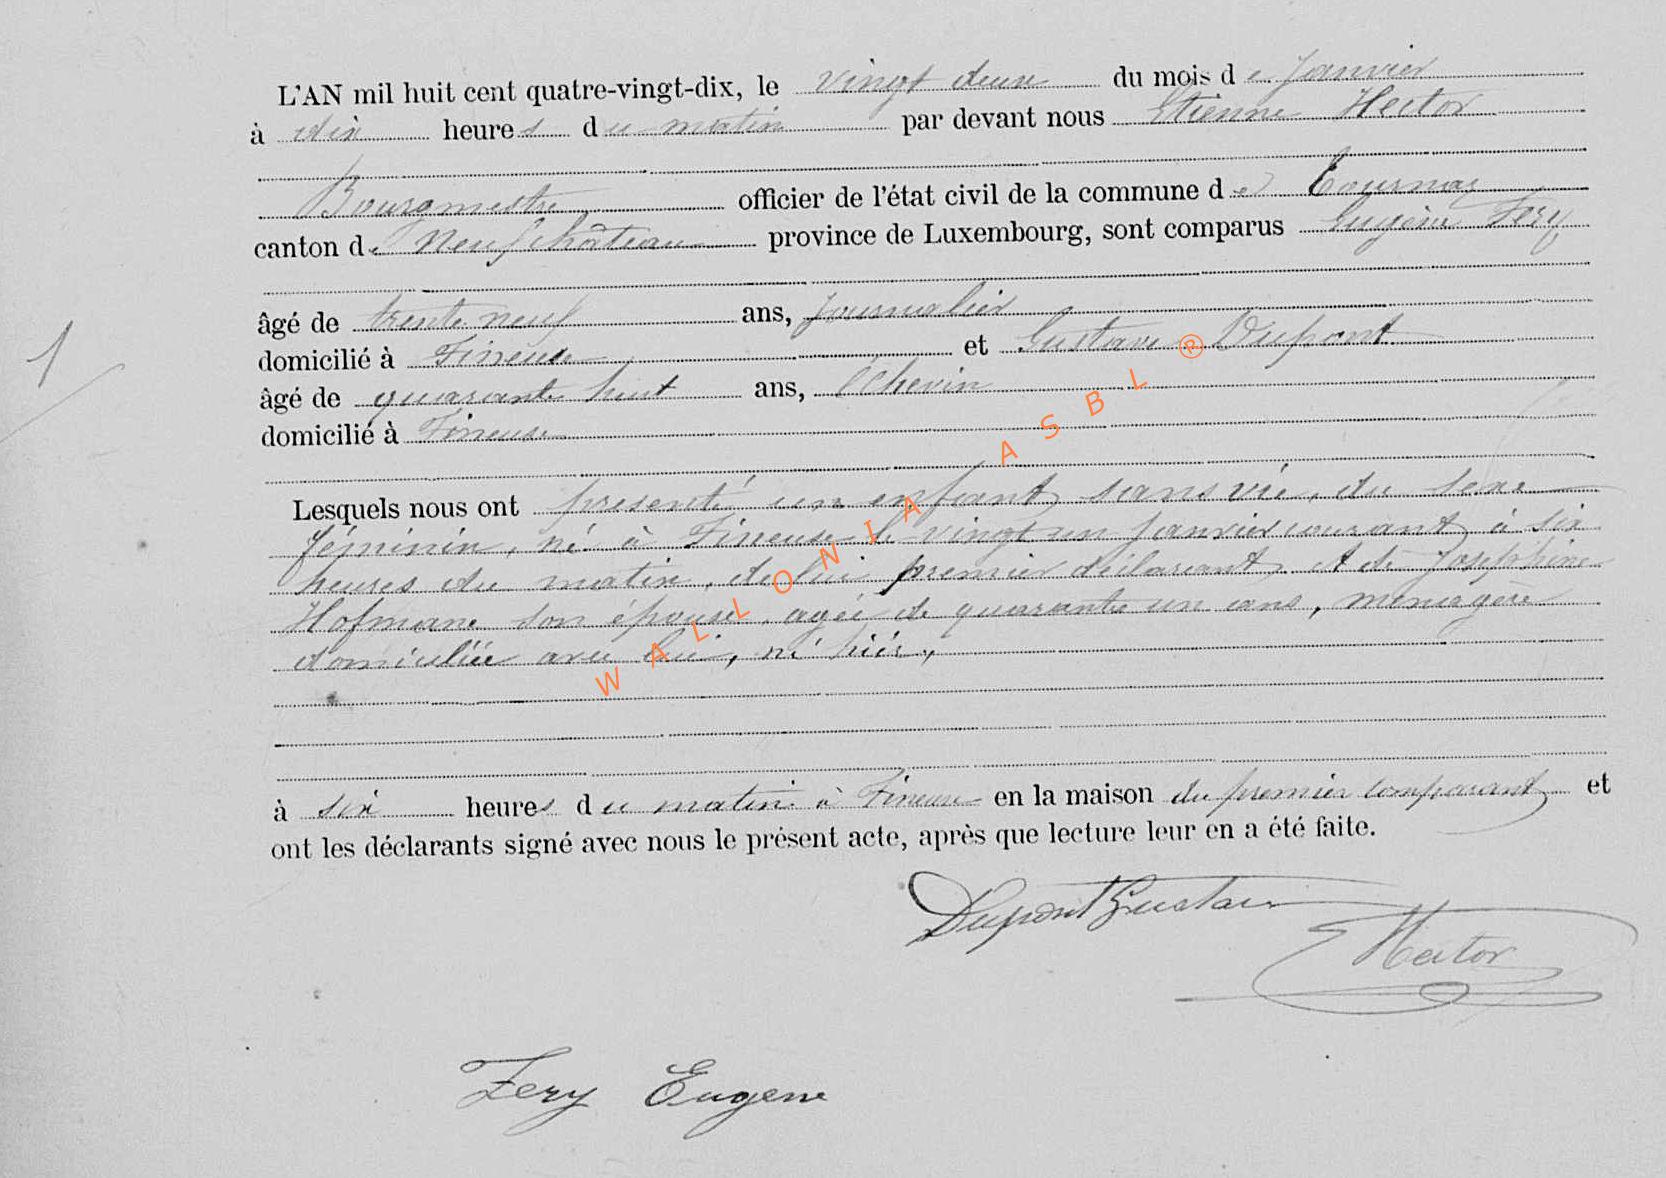 L'AN mil huit cent quatre-vingt-dix, le vingt deux du mois de Janvier
à dix heures du matin par devant nous Etienne Hector
Bourgmestre officier de l'état civil de la commune de Tournay
canton de Neufchâteau province de Luxembourg, sont comparus Eugène Fery
âgé de trente neuf ans, Journalier
1
domicilié à Fineuse et Gustave Dupont
âgé de quarante huit ans, échevin
domicilié à Fineuse
Lesquels nous ont présenté un enfant sans vie, du sexe
féminin, né à Fineuse le vingt un janvier courant à six
heures du matin, de lui premier déclarant et de Josephine
Hofmane son épouse, agée de quarante un ans, ménagère
domiciliée avec lui, né hier,
à six heures du matin à Fineuse en la maison du premier comparant et
ont les déclarants signé avec nous le présent acte, après que lecture leur en a été faite.
Dupont Gustave
E Hector
Fery Eugene
WALLONIA ASBL ®